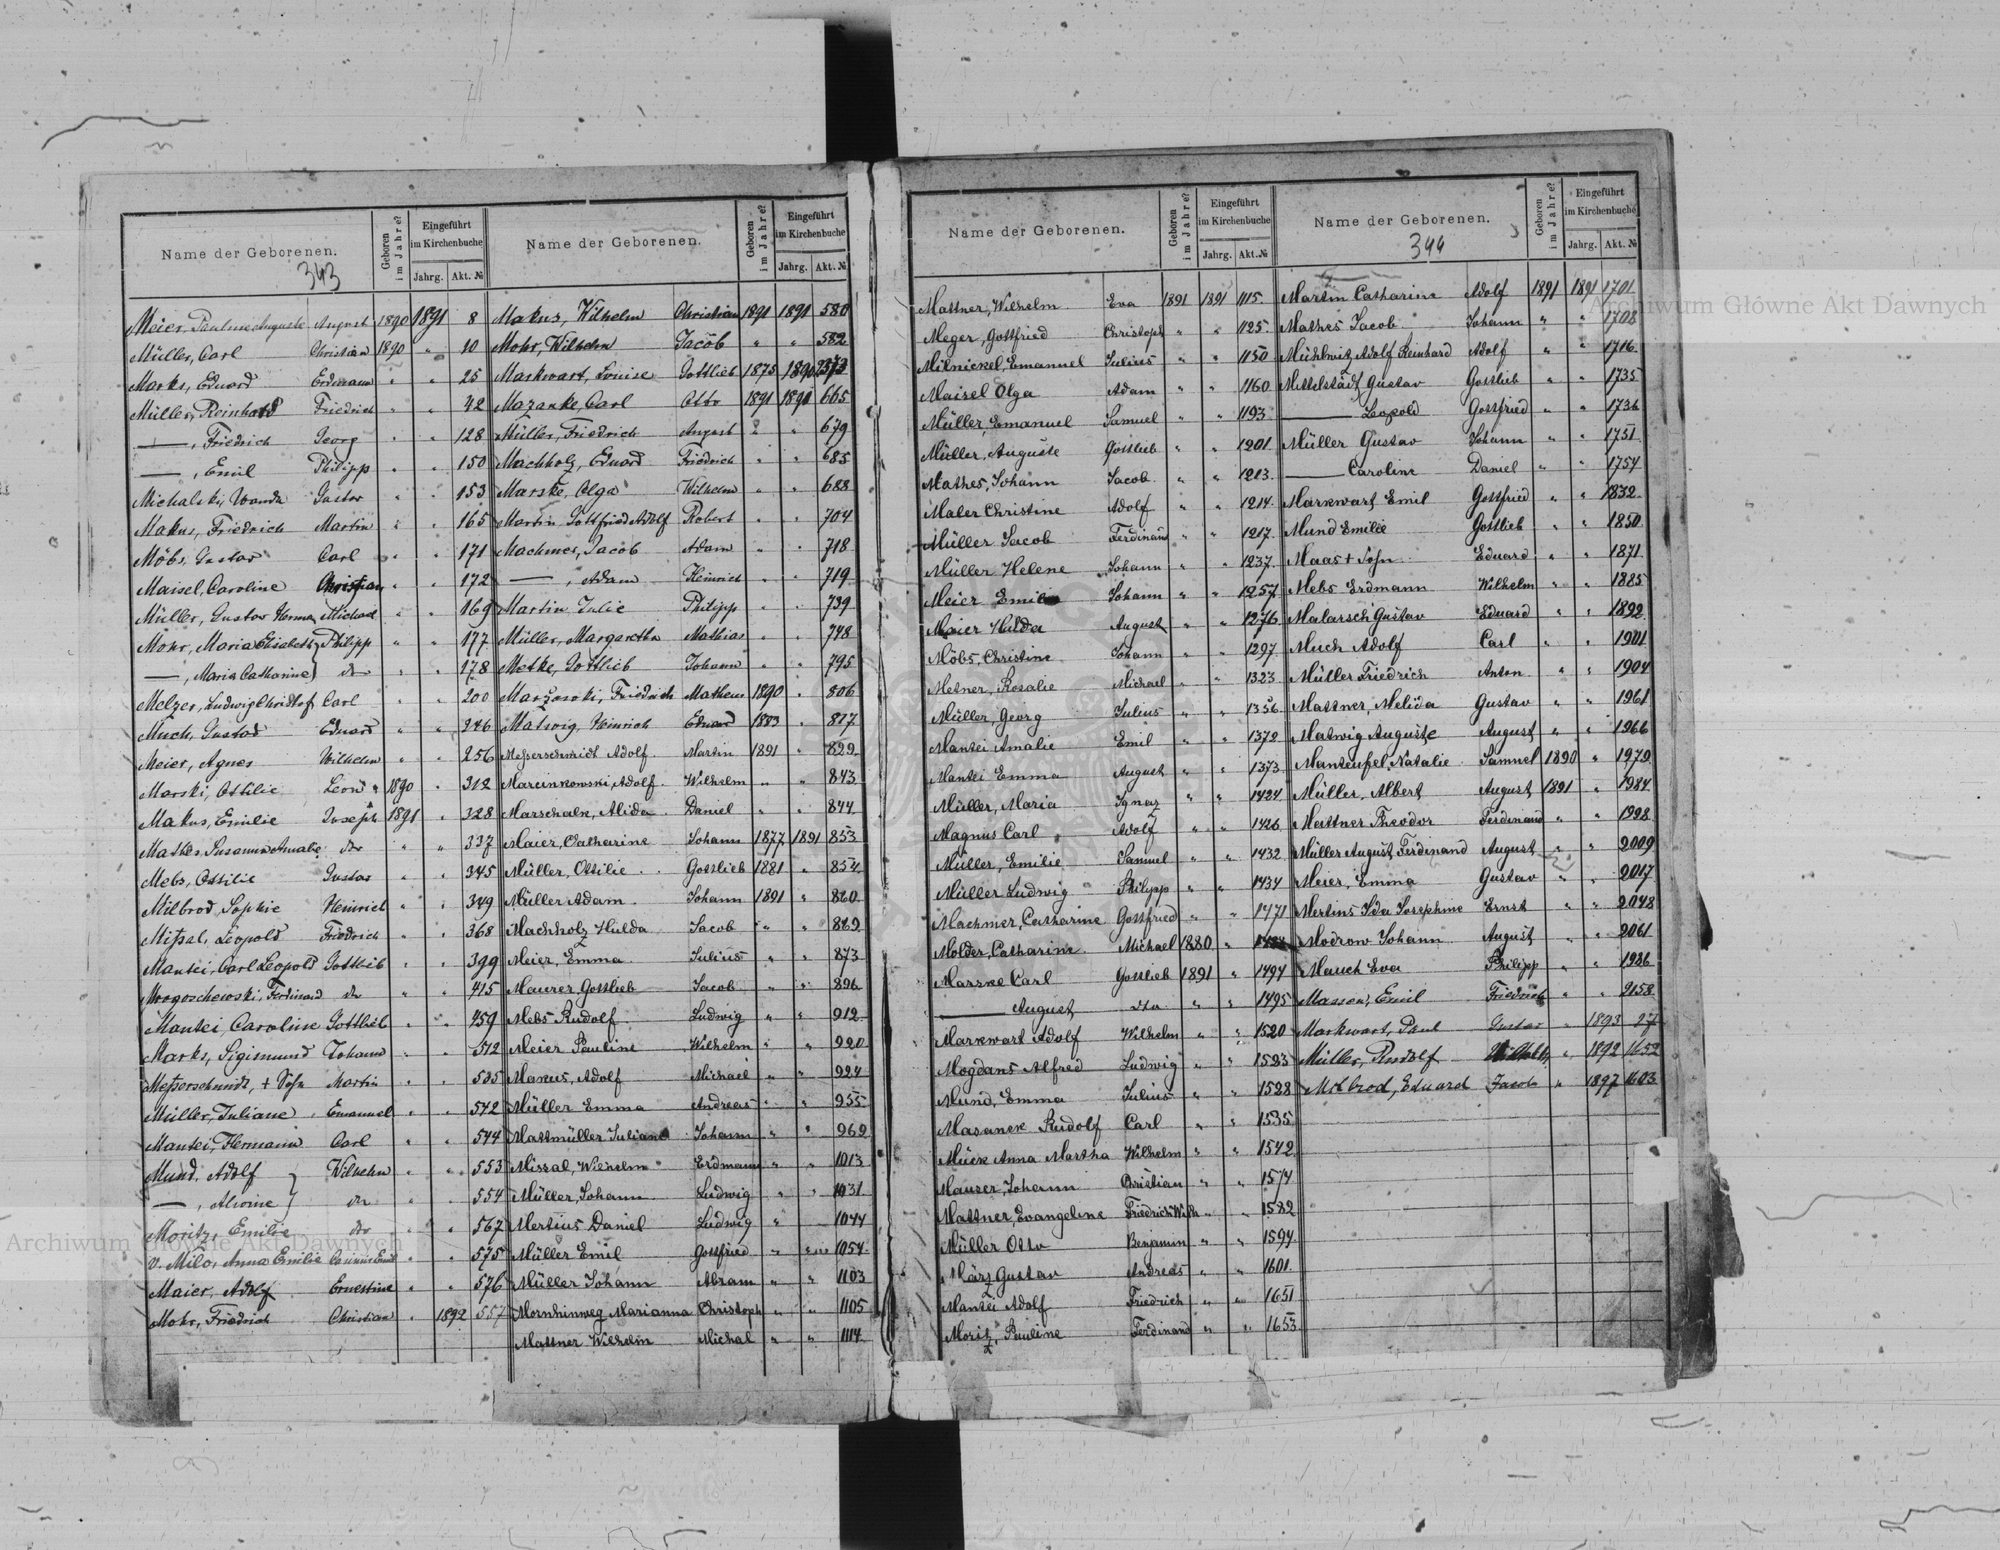 Name der Geborenen.
Geboren im Jahre?
Eingeführt im Kirchenbuche
Jahrg. Akt. №
343
Meier, Pauline Auguste August 1890 1891 8
Müller, Carl Christian 1890 " 10
Marks, Eduard Erdmann " " 25
Müller, Reinhold Friedrich " " 42
—, Friedrich Georg " " 128
—, Emil Philipp " " 150
Michalski, Wanda Gustav " " 153
Makus, Friedrich Martin " " 165
Möbs, Gustav Carl " " 171
Maisel, Caroline Christian " " 172
Müller, Gustav Herman Michael " " 169
Mohr, Maria Elisabeth Philipp " " 177
—, Maria Catharine do " " 178
Melzer, Ludwig Christof Carl " " 200
Much, Gustav Eduard " " 246
Meier, Agnes Wilhelm " " 256
Marski, Ottilie 1890 " 312
Makus, Emilie Joseph 1891 " 328
Mathes, Susanna Amalie do " " 337
Mebs, Ottilie Gustav " " 345
Milbrod, Sophie Heinrich " " 349
Mißal, Leopold Friedrich " " 368
Mantei, Carl Leopold Gottlieb " " 399
Ferdinand do " " 415
Mantei, Caroline Gottlieb " " 459
Marks, Sigismund Johann " " 512
Meßerschmidt, + Sohn Martin " " 535
Müller, Juliane Emanuel " " 542
Mantei, Hermann Carl " " 544
Mund, Adolf Wilhelm " " 553
—, Alwine do " " 554
Moritz, Emilie do " " 567
v. Milo, Anna Emilie " " 575
Maier, Adolf Ernestine " " 576
Mohr, Friedrich Christian " 1892 557
Name der Geborenen.
Geboren im Jahre?
Eingeführt im Kirchenbuche
Jahrg. Akt. №
Makus, Wilhelm Christian 1891 1891 580
Mohr, Wilhelm Jacob " " 582
Markwart, Louise Gottlieb 1875
Mazanke, Carl Otto 1891 665
Müller, Friedrich August " " 679
Machholz, Eduard Friedrich " " 685
Marske, Olga Wilhelm " " 688
Martin, Gottfried Adolf Robert " " 704
Machmer, Jacob Adam " " 718
—, Adam Heinrich " " 719
Martin Julie Philipp " " 739
Müller, Margaretha Mathias " " 748
Metke, Gottlieb Johann " " 795
Friedrich Matheus 1890 " 806
Matwig, Heinrich Eduard 1883 " 817
Meßerschmidt Adolf Martin 1891 " 829
Marcinkowski, Adolf Wilhelm " " 843
Marschalk, Alida Daniel " " 844
Maier, Catharine Johann 1877 1891 853
Müller, Ottilie Gottlieb 1881 " 854
Müller Adam Johann 1891 " 860
Machholz Hulda Jacob " " 869
Meier, Emma Julius " " 873
Maurer Gottlieb Jacob " " 896
Mebs Rudolf Ludwig " " 912
Meier Pauline Wilhelm " " 920
Makus, Adolf Michael " " 924
Müller Emma Andreas " " 955
Mattmüller Juliane Johann " " 969
Missal, Wilhelm Erdmann " " 1013
Müller, Johann Ludwig " " 1031
Mertins Daniel Ludwig " 1044
Müller Emil Gottfried " " 1054
Müller Johann Abram " " 1103
Mornhinweg Marianna Christoph " " 1105
Mattner Wilhelm Michal " " 1114
Name der Geborenen.
Geboren im Jahre?
Eingeführt im Kirchenbuche
Jahrg. Akt. №
Mattner, Wilhelm Eva 1891 1891 1115
Meger, Gottfried Christoph " " 1125
Milnickel, Emanuel Julius " " 1150
Maisel Olga Adam " " 1160
Müller, Emanuel Samuel " " 1193
Müller, Auguste Gottlieb " " 1201
Mathes, Johann Jacob " " 1213
Maler Christine Adolf " " 1214
Müller Jacob Ferdinand " " 1217
Müller Helene Johann " " 1237
Meier Johann " " 1257
Maier Hulda August " " 1276
Möbs, Christine Johann " " 1297
Metner, Rosalie Michael " " 1323
Müller, Georg Julius " " 1356
Mantei Amalie Emil " " 1372
Mantei Emma August " " 1373
Müller, Maria Ignaz " " 1424
Magnus Carl Adolf " " 1426
Müller, Emilie Samuel " " 1432
Müller Ludwig Philipp " " 1434
Machmer, Catharine Gottfried " " 1471
Molder, Catharine Michael 1880 "
Marske Carl Gottlieb 1891 " 1494
— August do " " 1495
Markwart Adolf Wilhelm " " 1520
Mogdans Alfred Ludwig " " 1523
Mund, Emma Julius " " 1528
Masanek Rudolf Carl " " 1535
Mück Anna Martha Wilhelm " " 1542
Mauser, Johann Christian " " 1574
Mattner, Evangeline Friedrich Wilh " " 1582
Müller Otto Benjamin " " 1594
März Gustav Andreas " " 1601
Mantei Adolf Friedrich " " 1651
Moritz, Pauline Ferdinand " " 1653
Name der Geborenen.
Geboren im Jahre?
Eingeführt im Kirchenbuche
Jahrg. Akt. №
344
Martin Catharine Adolf 1891 1891 1701
Mathes Jacob Johann " " 1708
Mühlwitz, Adolf Reinhard Adolf " " 1716
Mittelstädt Gustav Gottlieb " " 1735
— Leopold Gottfried " " 1736
Müller Gustav Johann " " 1751
— Caroline Daniel " " 1754
Markwart Emil Gottfried " " 1832
Mund Emilie Gottlieb " " 1850
Maas + Sohn Eduard " " 1871
Mebs Erdmann Wilhelm " " 1885
Malarsch Gustav Eduard " " 1892
Much Adolf Carl " " 1901
Müller Friedrich Anton " " 1904
Mattner, Melida Gustav " " 1961
Matwig Auguste August " " 1966
Manteufel, Natalie Samuel 1890 " 1979
Müller, Albert August 1891 " 1984
Mattner Theodor Ferdinand " " 1998
Müller August Ferdinand August " " 2009
Meier, Emma Gustav " " 2017
Mertins Ida Josephine Ernst " " 2048
Modrow Johann August " " 2061
Mauch Eva Philipp " " 1986
Emil Friedrich " " 2158
Markwart, Paul Gustav " 1893 27
Müller, Rudolf " 1892 1652
Milbrod, Eduard Jacob " 1897 1603
Archiwum Główne Akt Dawnych
Archiwum Główne Akt Dawnych